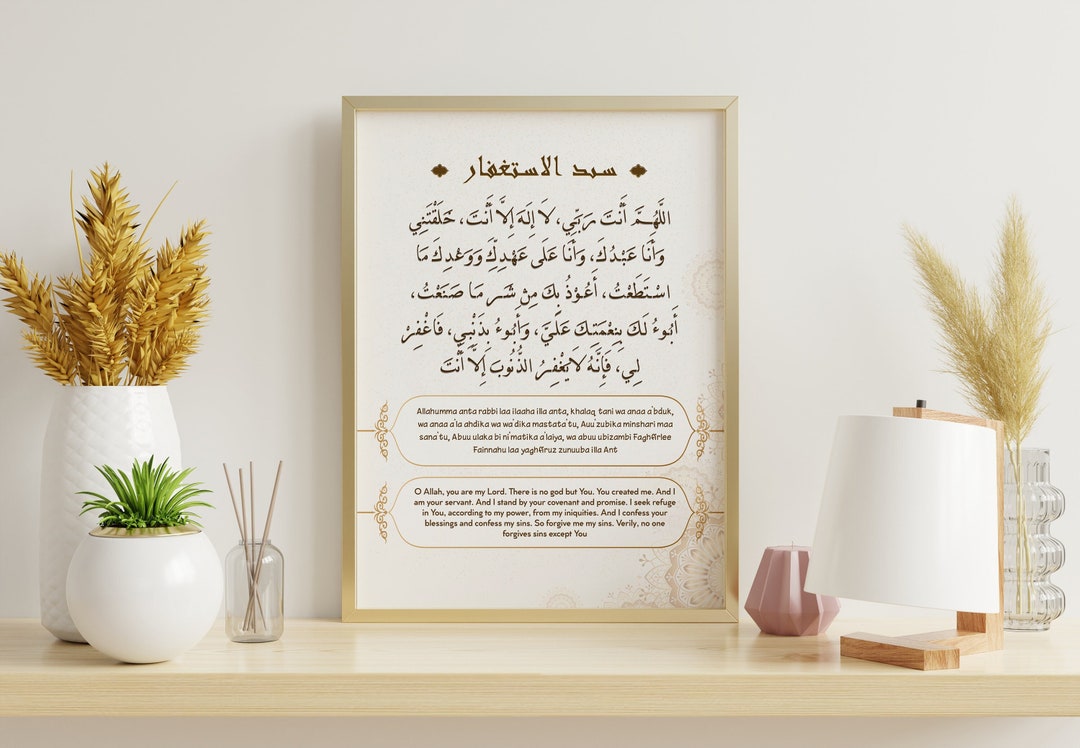 سيد الاستغفار
اللَّهُمَّ أَنْتَ رَبِّي، لَا إِلَهَ إِلَّا أَنْتَ، خَلَقْتَنِي
وَأَنَا عَبْدُكَ، وَأَنَا عَلَى عَهْدِكَ وَوَعْدِكَ مَا
اسْتَطَعْتُ، أَعُوْذُ بِكَ مِنْ شَرِ مَا صَنَعْتُ،
أَبُوءُ لَكَ بِنِعْمَتِكَ عَلَيَّ، وَأَبُوءُ بِذَنْبِي، فَاغْفِرْ
لِي، فَإِنَّهُ لَا يَغْفِرُ الذُّنُوبَ إِلَّا أَنْتَ
Allahumma anta rabbi laa ilaaha illa anta, khalaq tani wa anaa a'bduk,
wa anaa a'la ahdika wa wa'dika mastata'tu, Auu'zubika minshari maa
sana'tu, Abuu ulaka bi ni'matika a'laiya, wa abuu ubizambi Faghfirlee
Fainnahu laa yaghfiruz zunuuba illa Ant
O Allah, you are my Lord. There is no god but You. You created me. And I
am your servant. And I stand by your covenant and promise. I seek refuge
in You, according to my power, from my iniquities. And I confess your
blessings and confess my sins. So forgive me my sins. Verily, no one
forgives sins except You